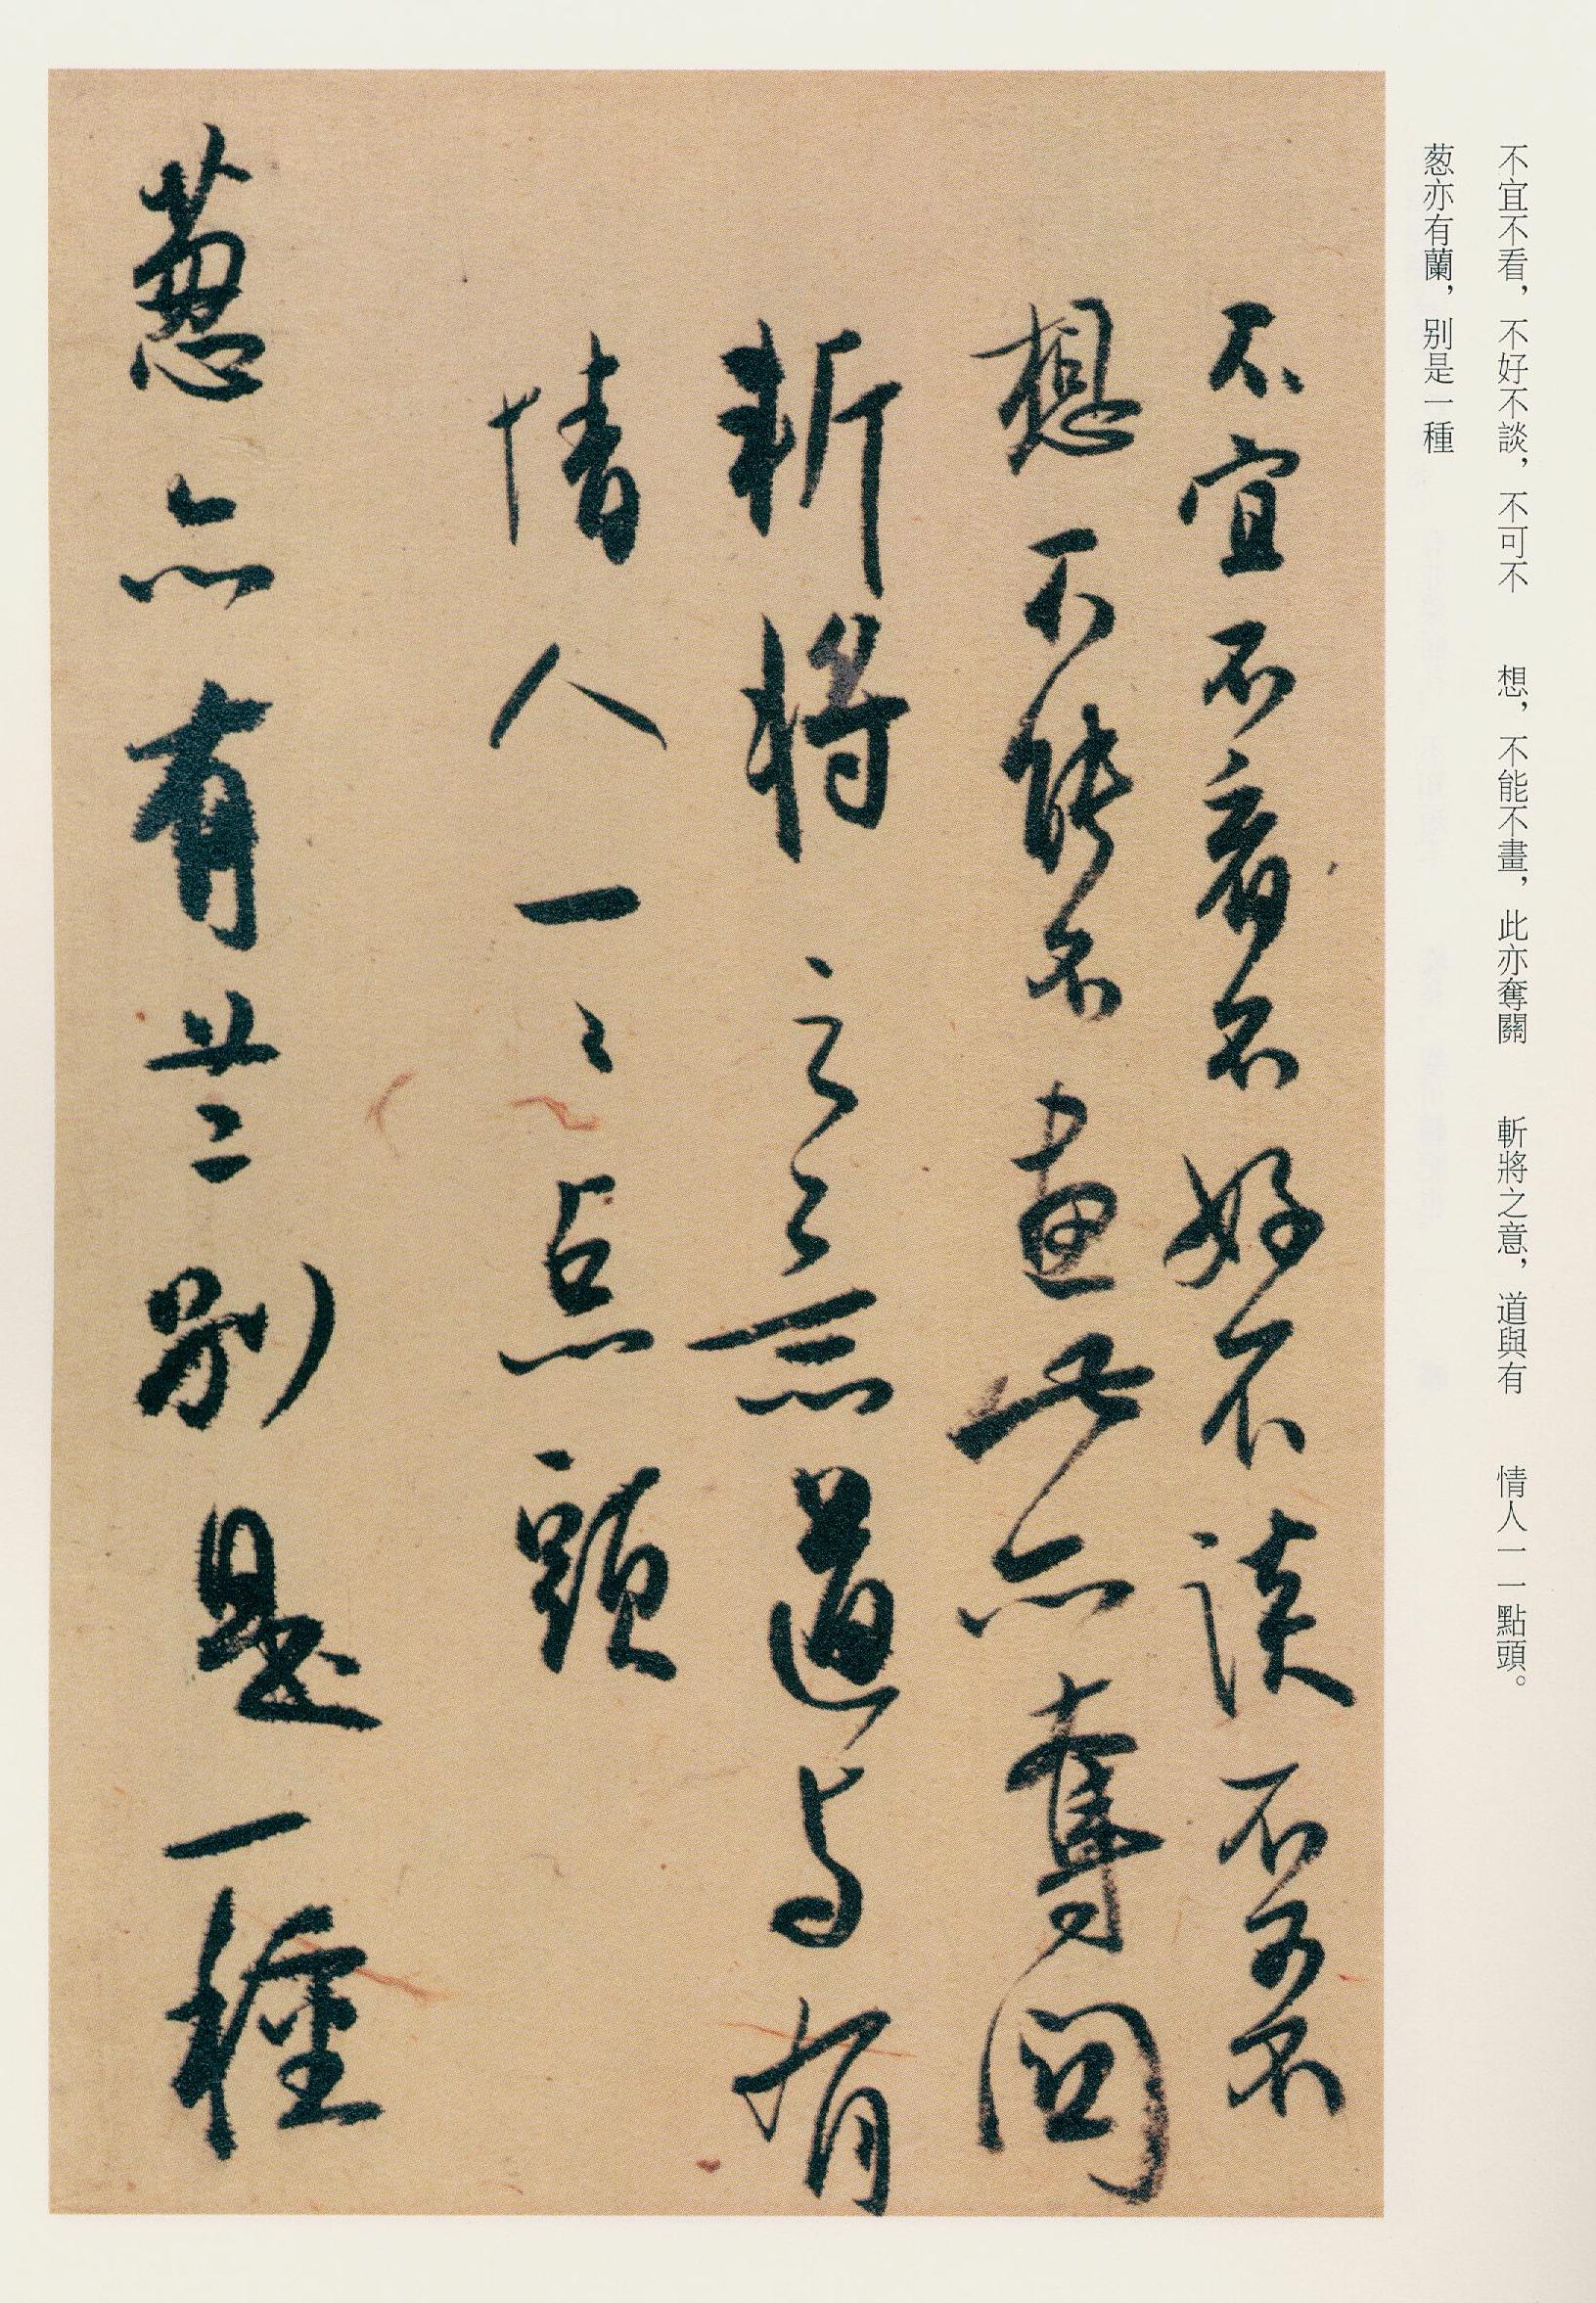 不宜不看，不好不談，不可不　想，不能不畫，此亦奪關　斬將之意，道與有　情人一一點頭。
葱亦有蘭，别是一種
不宜不看不好不談不可不
想不能不畫此亦奪関
斬將之意道与有
情人一〻点頭
葱亦有兰别是一種